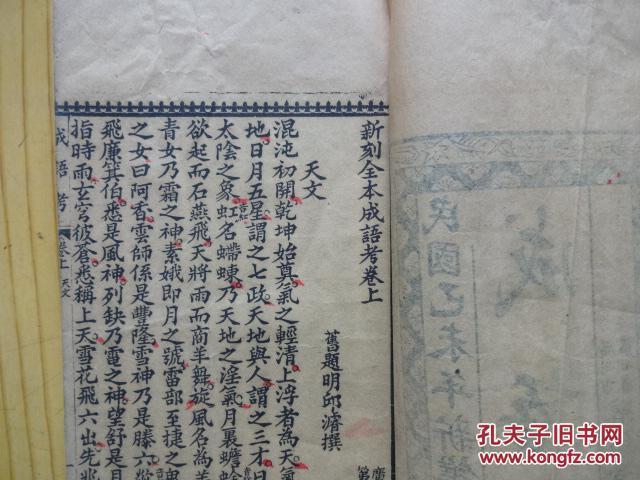 新刻全本成語考卷上
舊題明邱濬撰
天文
混沌初開乾坤始奠氣之輕清上浮者為天氣
地日月五星謂之七政天地與人謂之三才日
太陰之象虹名螮蝀乃天地之淫氣月裏蟾蜍
欲起而石燕飛天將雨而商羊舞旋風名為羊
青女乃霜之神素娥即月之號雷部至捷之鬼
之女曰阿香雲師係是豐隆雪神乃是滕六
飛廉箕伯悉是風神列缺乃電之神望舒是月
指時雨玄穹彼蒼悉稱上天雪花飛六出先兆
成語考
卷上
天文
民國己未年新
孔夫子旧书网
www.kongfz.com